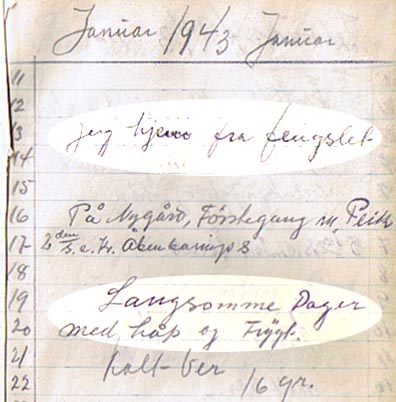 Januar 1943 Januar
11
12
13 jeg hjem fra fengslet
14
15
16 På Nygård, Förstegang m, Peik
17 2 den s. e. Kr. Åbenbarings
18
19 Langsomme Dager
20 med håp og Frygt.
21 kalt-ber
22 16 gr.